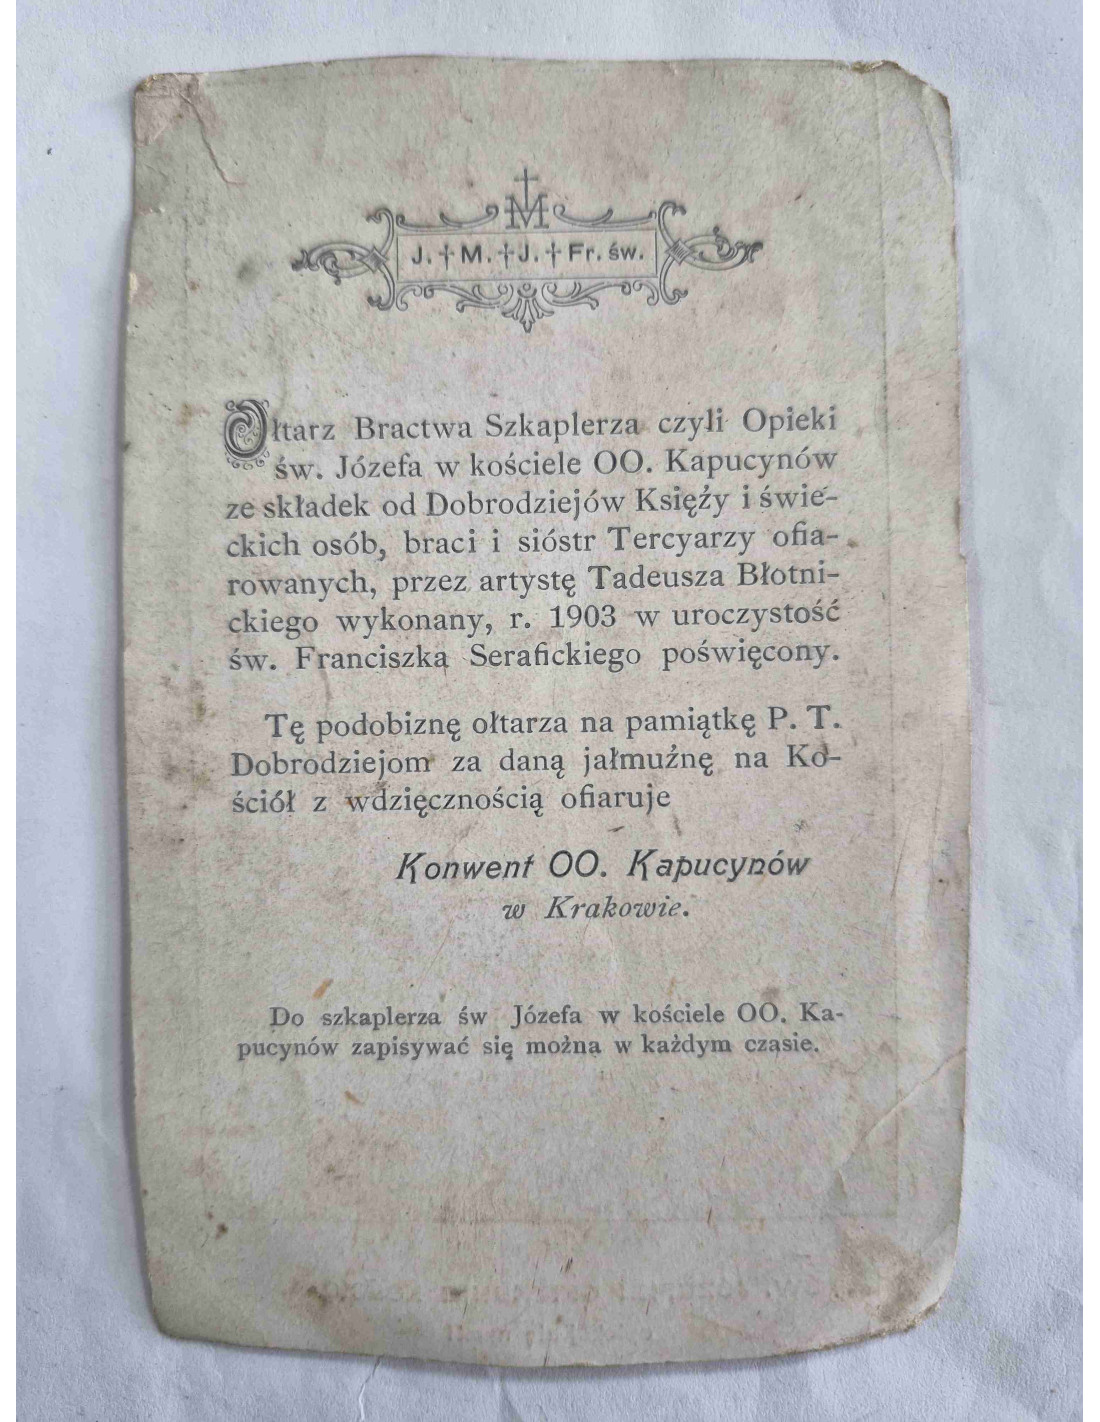 M
J. † M. † J. † Fr. św.
Ołtarz Bractwa Szkaplerza czyli Opieki
św. Józefa w kościele OO. Kapucynów
ze składek od Dobrodziejów Księży i świe-
ckich osób, braci i sióstr Tercyarzy ofia-
rowanych, przez artystę Tadeusza Błotni-
ckiego wykonany, r. 1903 w uroczystość
św. Franciszka Serafickiego poświęcony.
Tę podobiznę ołtarza na pamiątkę P. T.
Dobrodziejom za daną jałmużnę na Ko-
ściół z wdzięcznością ofiaruje
Konwent OO. Kapucynów
w Krakowie.
Do szkaplerza św Józefa w kościele OO. Ka-
pucynów zapisywać się można w każdym czasie.